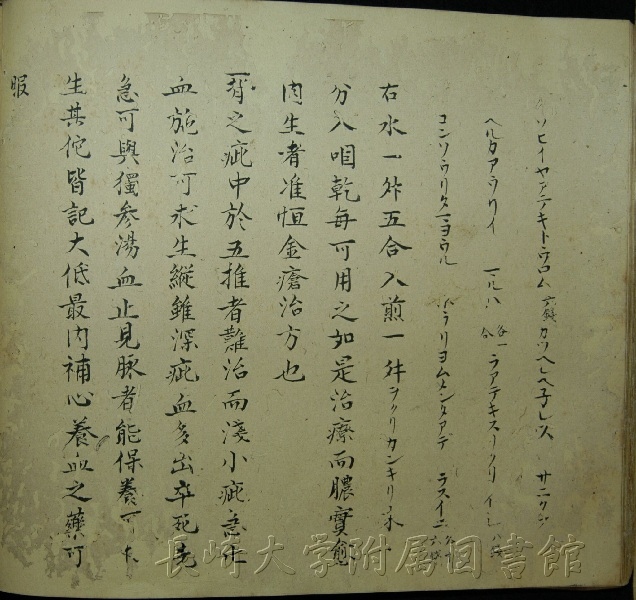 ソヒイヤアテキトウロム 六錢 カツヘレヘ子レ以 サニクシ
ヘルタアラリイ 一ルハ 各一合 ラアテキスークリイレ 八錢
コンソウリタマヨウル ハラリヨムメンタアテ ラスイニ
右水一舛五合入煎一舛ラクリカンキリ
分入咱乾毎可用之如是治療而膿實愈
肉生者准恒金瘡治方也
一背之疵中於五推者難治而淺小疵急止
血施治可求生縦雖深疵血多出卒死先
急可與獨参湯血止見脉者能保養可
生其佗皆記大低最内補心養血之藥可
服
長崎大学附属図書館